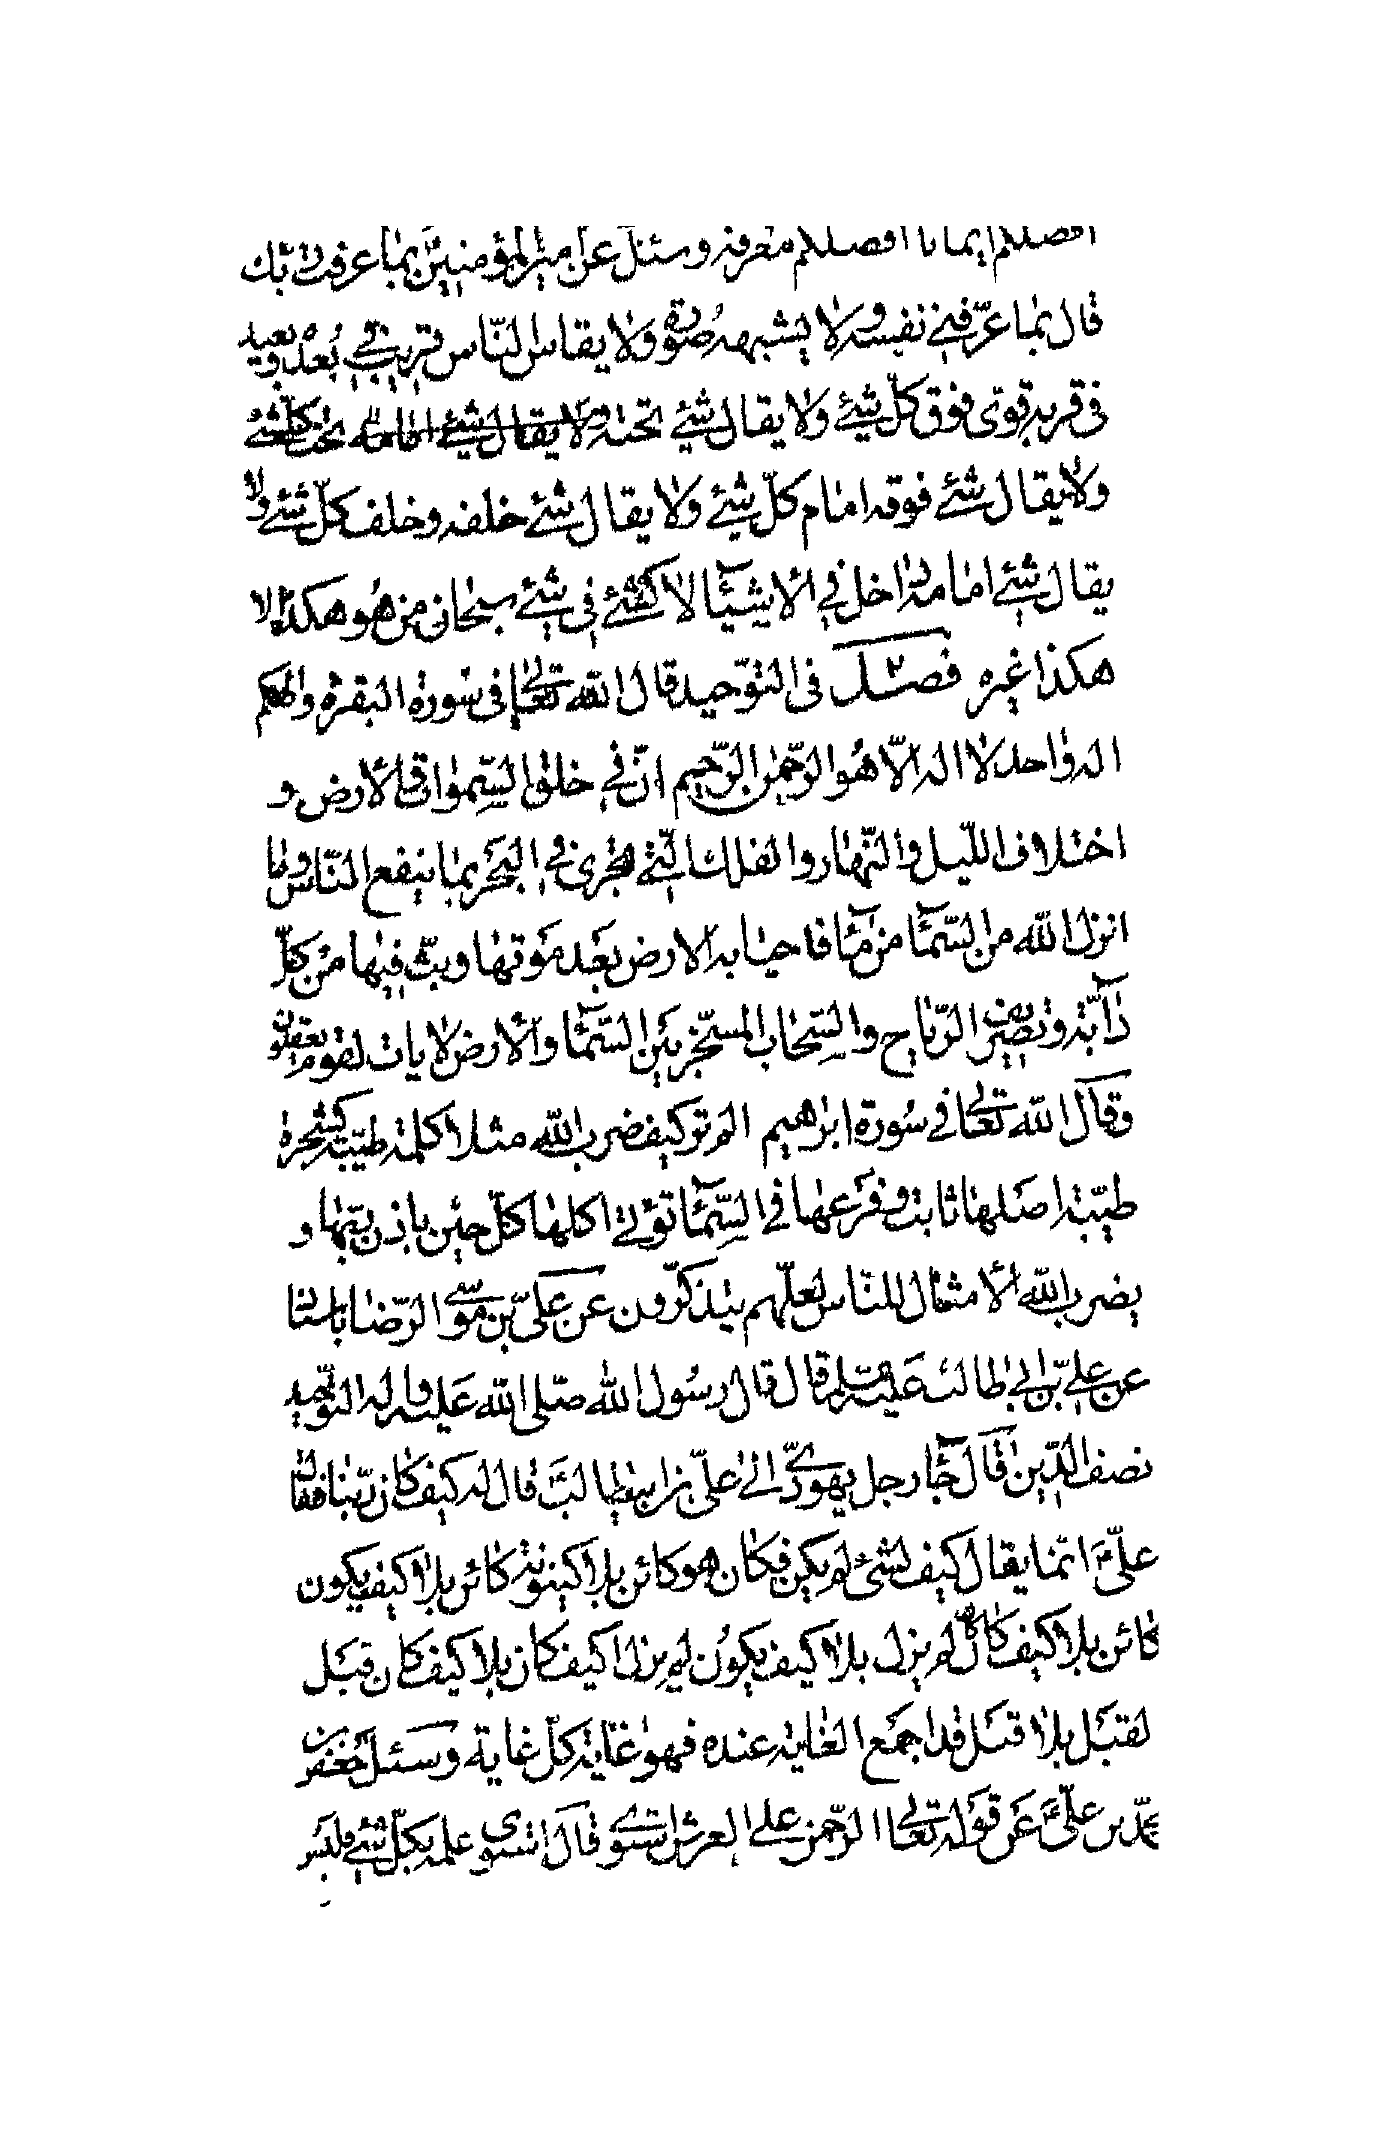 افضلكم ايمانا افضلكم معرفة وسئل عن امير المؤمنين بما عرفت ربك
قال بما عرّفني نفسه ولا يشبهه صُورة ولا يقاس النّاس قريب في بُعده وبعيد
في قربه قوى فوق كلّ شئ ولا يقال شئ تحته ولا يقال شئ تحت كلّ شئ
ولا يقال شئ فوقه امام كلّ شئ ولا يقال شئ خلفه وخلف كلّ شئ ولا
يقال شئ امامه داخل في الأشيآء لا كشئ في شئ سبحان من هُو هكذا لا
هكذا غيره فصل في التوّحيد قال الله تعالى في سُورة البقره والهكم
اله واحد لا اله الّا هُو الرّحمٰن الرّحيم انّ في خلق السّمٰوات والأرض و
اختلاف اللّيل والنّهار والفلك الّتي تجرى في البحر بما ينفع النّاس وما
انزل الله من السّمآء من مآء فاحيا به الارض بعد موتها وبثّ فيها من كلّ
دآبّة وتصريف الرّياح والسّحاب المسخّر بين السّمآء والأرض لايات لقوم يعقلون
وقال الله تعالى في سُورة ابرٰهيم الم تر كيف ضرب الله مثلا كلمة طيّبة كشجرة
طيّبة اصلها ثابت وفرعها في السّمآء تؤتى اكلها كلّ حين باذن ربّها و
يضرب الله الأمثال للنّاس لعلّهم يتذكّرون عن علىّ بن موسى الرّضا باسناده
عن علىّ بن ابي طالب عليه السلم قال قال رسُول الله صلّى الله عليه واله التّوحيد
نصف الدّين قال جآء رجل يهوديّ الى علىّ بن ابيطالب قال له كيف كان ربّنا فقال
علىّ انّما يقال كيف لشئ لم يكن فكان هو كائن بلا كينونة كائن بلا كيف يكون
كائن بلا كيف كان لم يزل بلا كيف يكوُن لم يزل لا كيف كان بلا كيف كان قبل
لقبل بلا قبل قد اجمع الغاية عنده فهو غاية كلّ غاية وسئل جعفر بن
محمّد بن علىّ عن قوله تعالى الرّحمن على العرش استوى قال استوى علمه بكلّ شئ فليس